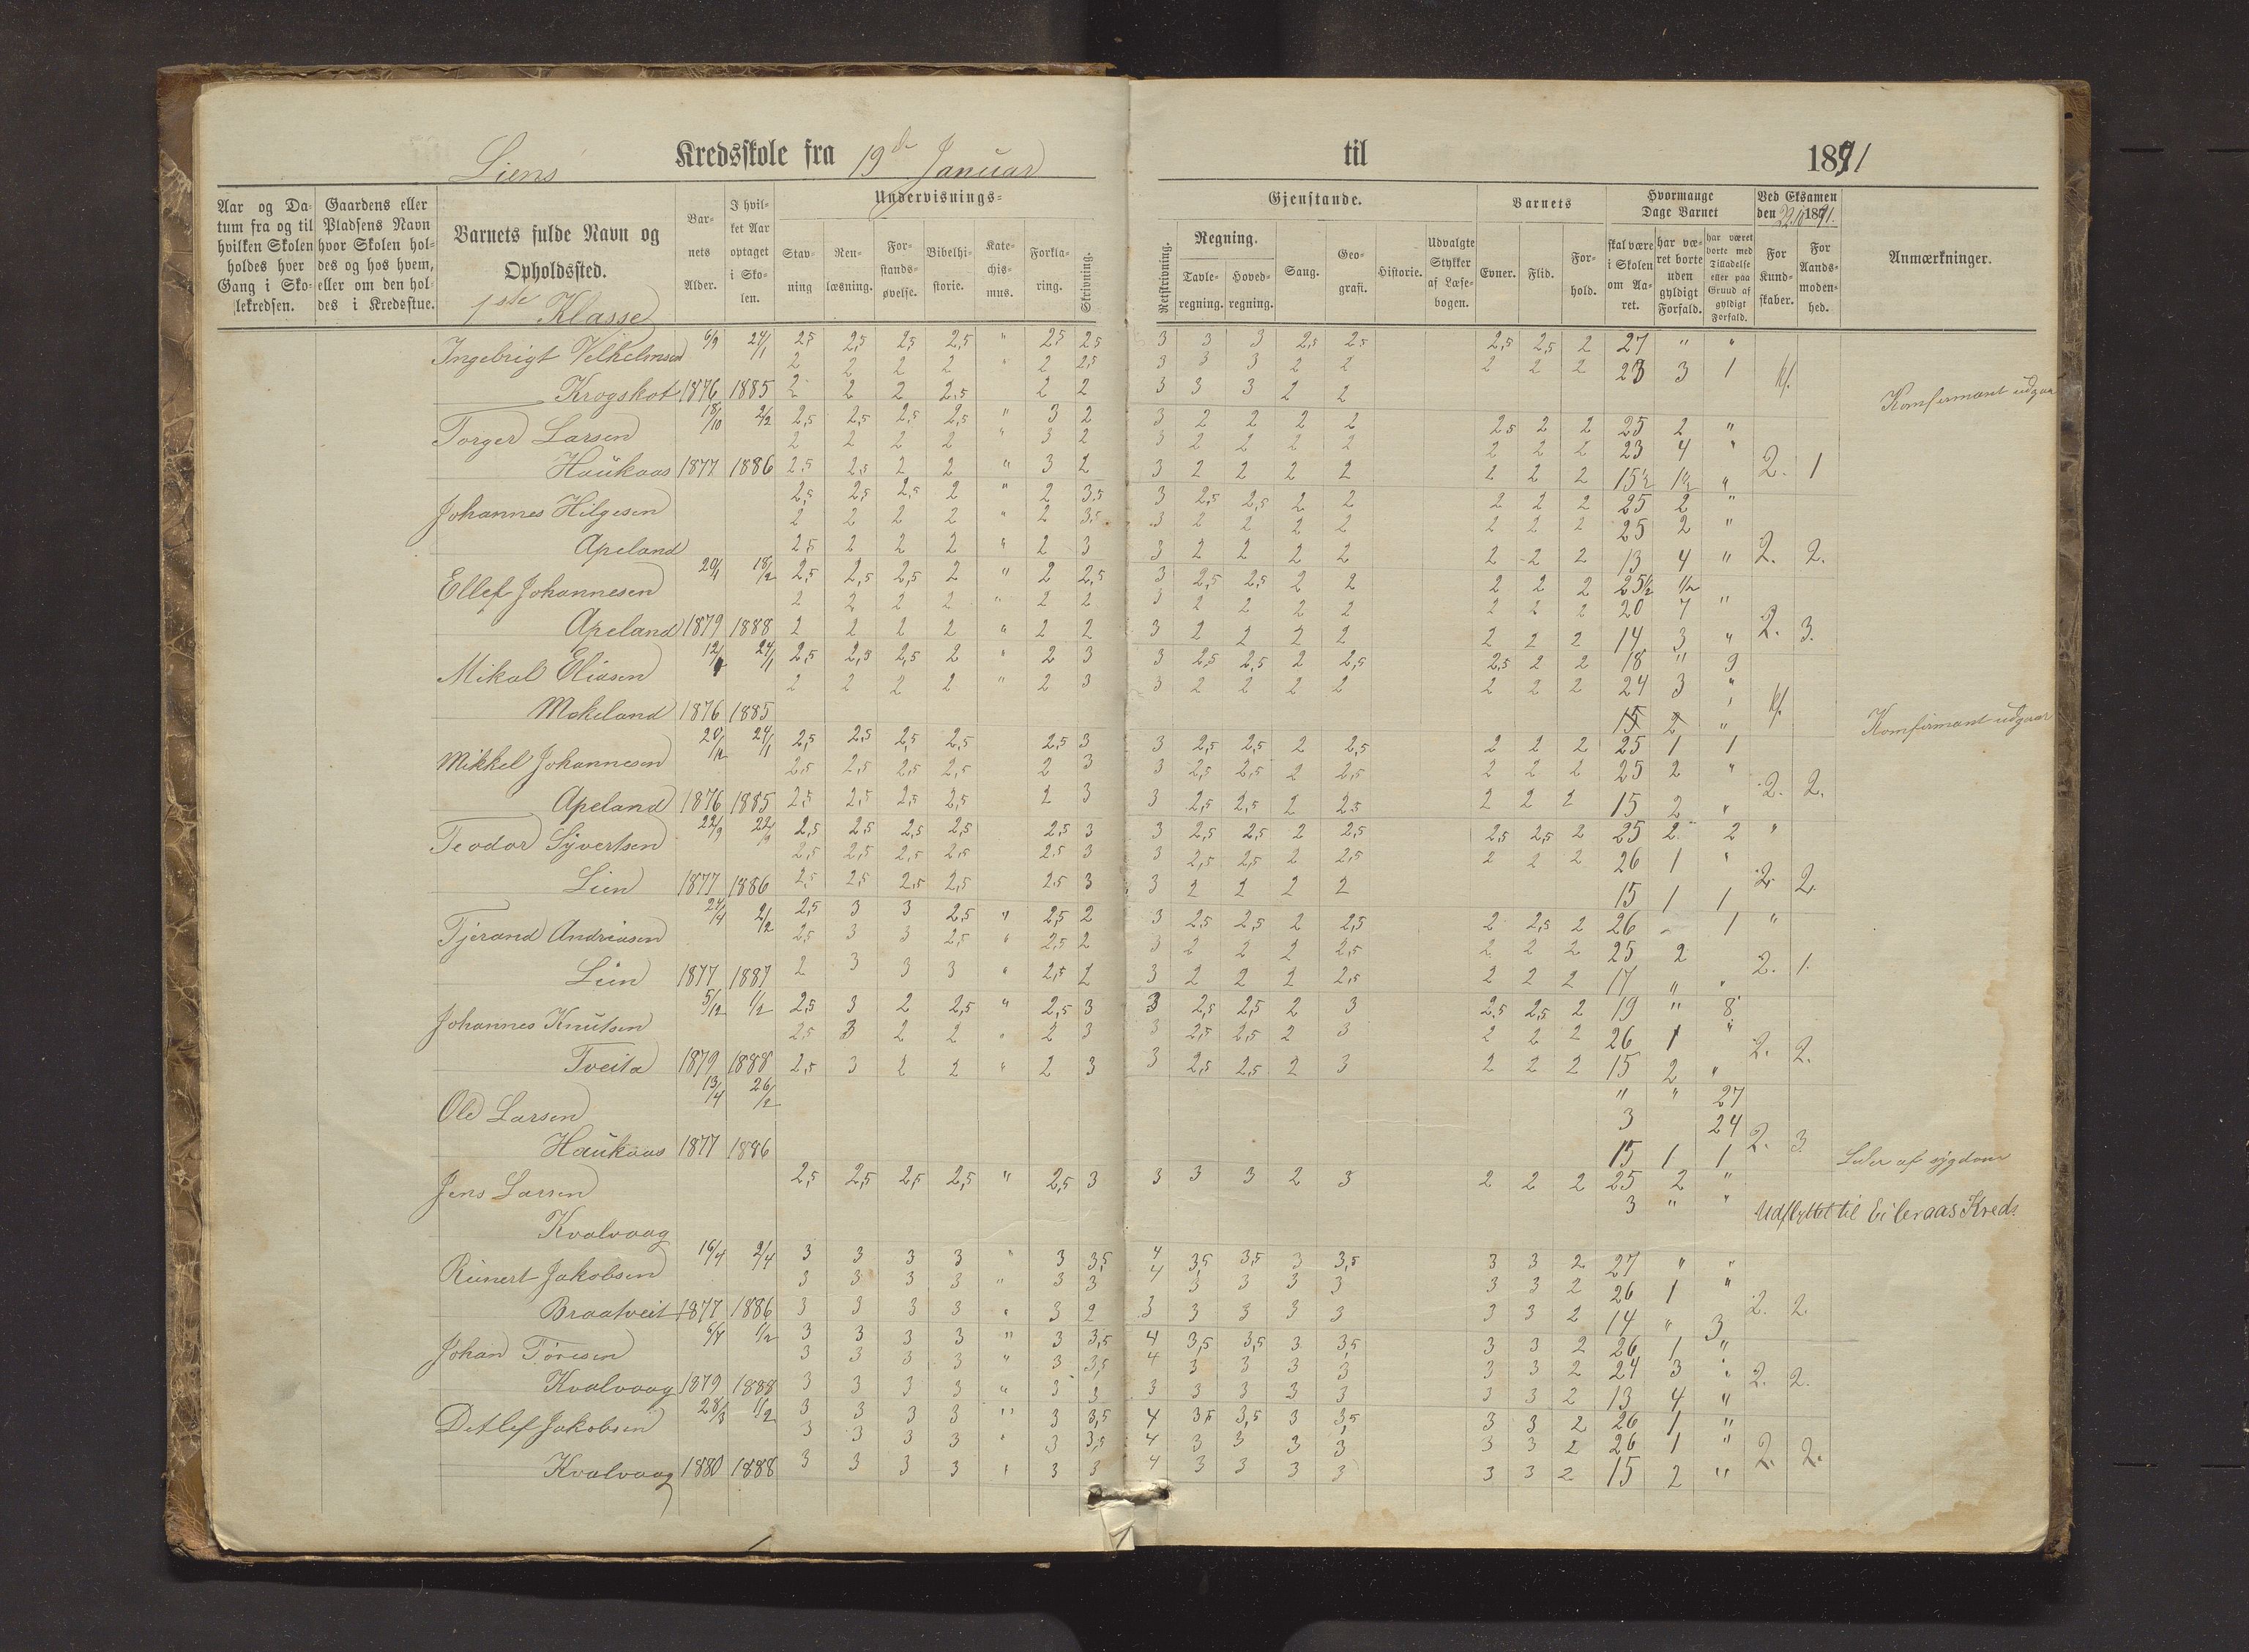 Liens Kredsskole fra 19de Januar til 1891
Undervisnings=
Gjenstande.
Aar og Da-
tum fra og til
hvilken Skolen
holdes hver
Gang i Sko-
lekredsen.
Gaardens eller
Pladsens Navn
hvor Skolen hol-
des og hos hvem,
eller om den hol-
des i Kredsstue.
Barnets fulde Navn og
Opholdssted.
1ste Klasse
Bar-
nets
Alder.
I hvil-
ket Aar
optaget
i Sko-
len.
Stav-
ning
Ren-
læsning.
For-
stands-
øvelse.
Bibelhi-
storie.
Kate-
chis-
mus.
Forkla-
ring.
Skrivning.
Retskrivning.
Regning.
Tavle-
regning.
Hoved-
regning.
Sang.
Geo-
grafi.
Historie.
Udvalgte
Stykker
af Læse-
bogen.
Barnets
Evner.
Flid.
For-
hold.
Hvormange
Dage Barnet
skal være
i Skolen
om Aa-
ret.
har væ-
ret borte
uden
gyldigt
Forfald.
har været
borte med
Tilladelse
eller paa
Grund af
gyldigt
Forfald.
Ved Eksamen
den
For
Kund-
skaber.
For
Aands-
moden-
hed.
Anmærkninger.
Ingebrigt Velhelmsen 6/9 24/1 2,5 2,5 2,5 2,5 " 2,5 2,5 3 3 3 2,5 2,5 2,5 2,5 2 27 " "
2 2 2 2 " 2 2,5 3 3 3 2 2 2 2 2 23 3 1
Krogskot 1876 1885 2 2 2 2,5 2 2 3 3 3 2 2 Komfirmant udgaar
Torger Larsen 18/10 2/2 2,5 2,5 2,5 2,5 " 3 2 3 2 2 2 2 2,5 2 2 25 2 "
2 2 2 2 " 3 2 3 2 2 2 2 2 2 2 23 4 "
Haukaas 1877 1886 2,5 2,5 2 2 " 3 2 3 2 2 2 2 2 2 2 15½ 1½ " 2. 1
Johannes Hilgesen 2,5 2,5 2,5 2 " 2 3,5 3 2,5 2,5 2 2 2 2 2 25 2 "
2 2 2 2 " 2 3,5 3 2 2 2 2 2 2 2 25 2 "
Apeland 2,5 2 2 2 " 2 3 3 2 2 2 2 2 2 2 13 4 " 2. 2.
Ellef Johannesen 20/1 18/2 2,5 2,5 2,5 2 " 2 2,5 3 2,5 2,5 2 2 2 2 2 25½ 1/2
2 2 2 2 " 2 2 3 2 2 2 2 2 2 2 20 7 "
Apeland 1879 1888 2 2 2 2 " 2 2 3 2 2 2 2 2 2 2 14 3 " 2. 3.
Mikal Eliasen 24/1 2,5 2,5 2,5 2 " 2 3 3 2,5 2,5 2 2,5 2,5 2 2 18 " 9
2 2 2 2 " 2 3 3 2 2 2 2 2 2 2 24 3 "
Mokeland 1876 1885 15 2 " Komfirmant udgaar
Mikkel Johannesen 24/1 2,5 2,5 2,5 2,5 2,5 3 3 2,5 2,5 2 2,5 2 2 2 25 1 1
2,5 2,5 2,5 2,5 2 3 3 2,5 2,5 2 2,5 2 2 2 25 2 "
Apeland 1876 1885 2,5 2,5 2,5 2,5 2 3 3 2,5 2,5 2 2,5 2 2 2 15 2 " 2. 2.
Teodor Syvertsen 22/9 22/9 2,5 2,5 2,5 2,5 2,5 3 3 2,5 2,5 2 2,5 2,5 2,5 2 25 2 2 "
2,5 2,5 2,5 2,5 2,5 3 3 2,5 2,5 2 2,5 2 2 2 26 1 "
Lien 1877 1886 2,5 2,5 2,5 2,5 2,5 3 3 2 2 2 2 15 1 1 2. 2.
Tjerand Andreasen 2/2 2,5 3 3 2,5 " 2,5 2 3 2,5 2,5 2 2,5 2 2,5 2 26 1 "
2,5 3 3 2,5 " 2,5 2 3 2 2 2 2,5 2 2 2 25 2
Lien 1877 1887 2 3 3 3 " 2,5 2 3 2 2 2 2,5 2 2 2 17 " " 2. 1.
Johannes Knutsen 5/12 1/2 2,5 3 2 2,5 " 2,5 3 3 2,5 2,5 2 3 2,5 2,5 2 19 " 8
2,5 3 2 2 " 2 3 3 2,5 2,5 2 3 2 2 2 26 1 "
Tveita 1879 1888 2,5 3 2 2 " 2 3 3 2,5 2,5 2 3 2 2 2 15 2 " 2. 2.
Ole Larsen 13/4 26/2 " " 27
3 24
Haukaas 1877 1886 15 1 1 2. 3 Lider af sygdom
Jens Larsen 2,5 2,5 2,5 2,5 " 2,5 3 3 3 3 2 3 2 2 2 25 2 "
3 " " Udflyttet til Eileraas Kreds
Kvalvaag
Reinert Jakobsen 16/4 2/4 3 3 3 3 " 3 3,5 4 3,5 3,5 3 3,5 3 3 2 27 " "
3 3 3 3 " 3 3 4 3 3 3 3 3 3 2 26 1 "
Braatveit 1877 1886 3 3 3 3 " 3 2 3 3 3 3 3 3 3 2 14 " 3 2. 2.
Johan Toresen 1/2 3 3 3 3 " 3 3,5 4 3,5 3,5 3 3,5 3 3 2 26 1 "
3 3 3 3 " 3 3,5 4 3 3 3 3 3 3 2 24 3 "
Kvalvaag 1879 1888 3 3 3 3 " 3 3 3 3 3 3 3 3 3 2 13 4 " 2. 2.
Detlef Jakobsen 28/3 3 3 3 3 " 3 3,5 4 3,5 3,5 3 3,5 3 3 2 26 1 "
3 3 3 3 " 3 3,5 4 3 3 3 3 3 3 2 26 1 "
Kvalvaag 1880 1888 3 3 3 3 " 3 3 4 3 3 3 3 3 3 2 15 2 " 2. 2.